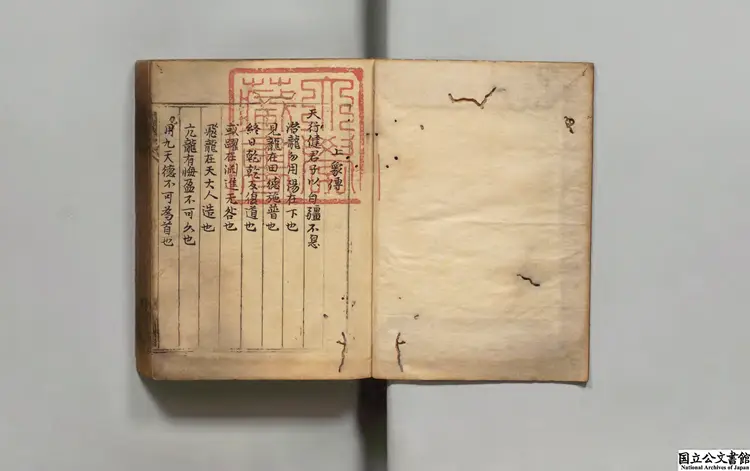 上象傳
天行健君子以自彊不息
潜龍勿用陽在下也
見龍在田德施普也
終日乾乾反復道也
或躍在淵進无咎也
飛龍在天大人造也
亢龍有悔盈不可久也
用九天德不可為首也
国立公文書館
National Archives of Japan